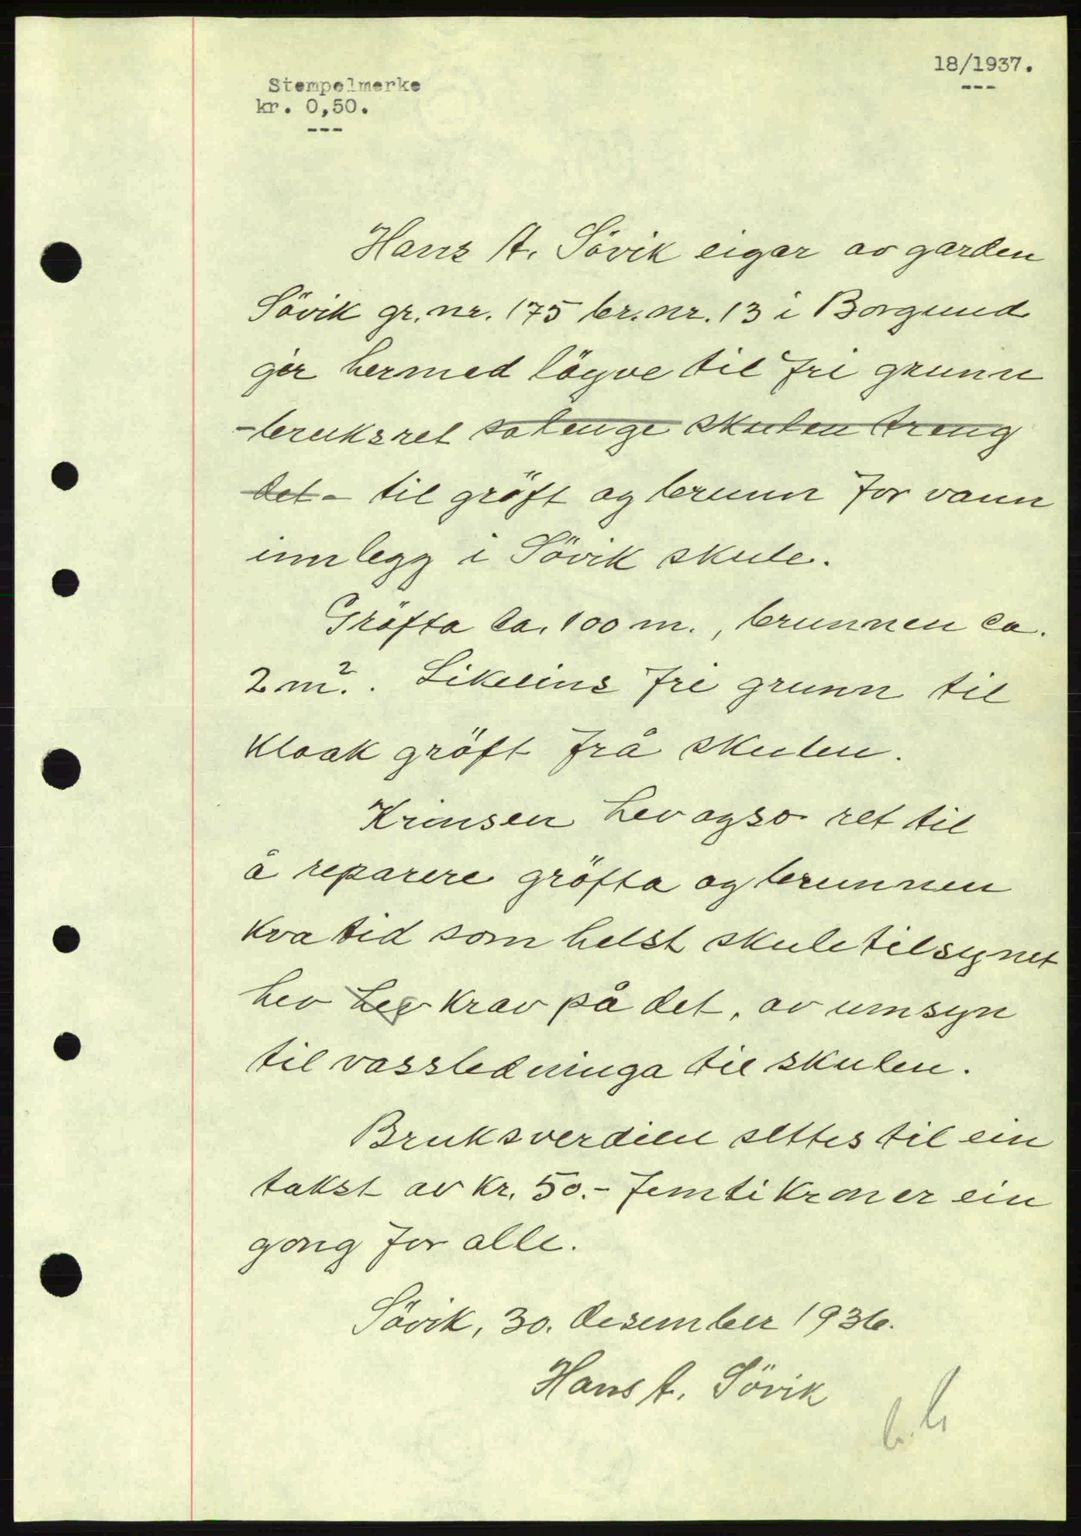 18/1937.
---
Stempelmerke
kr. 0,50.
---
Hans A. Sövik eigar av garden
Sövik gr. nr. 175 br. nr. 13 i Borgund
gjer hermed löyve til fri grunn
-bruksret so lenge skulen treng
det - til gröft og brunn for vann
innlegg i Sövik skule.
Gröfta ca. 100 m., brunnen ca.
2 m². . Likeeins fri grunn til
kloak gröft frå skulen.
Krinsen hev ogso ret til
å reparere gröfta og brunnen
kva tid som helst skuletilsynet
hev hev krav på det, av umsyn
til vassledninga til skulen.
Bruksverdien settes til ein
takst av kr. 50.- femti kroner ein
gong for alle.
Sövik, 30. desember 1936.
Hans A. Sövik